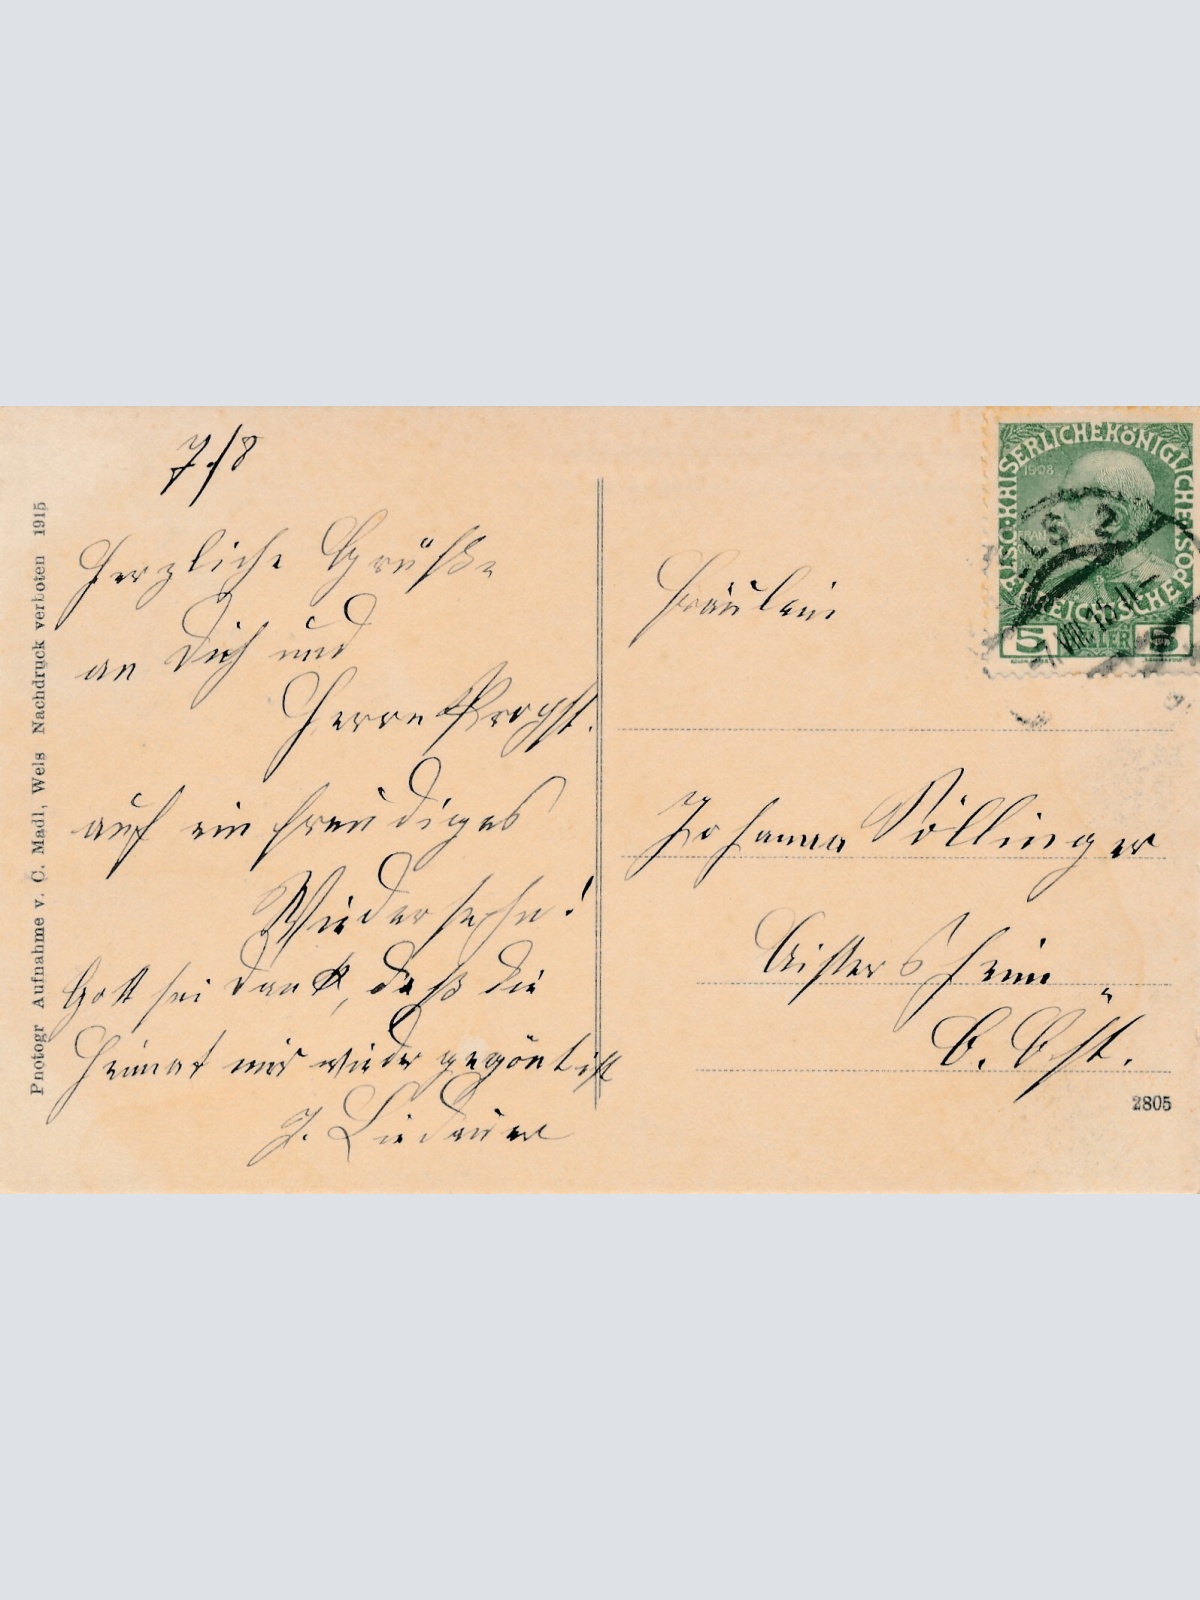 7./8
Herzliche Grüße
an Dich und
Herrn Propst.
auf ein freudiges
Wiedersehn!
Gott sei Dank, daß die
Heimat mir wieder gegönt ist
J.
Fräulein
Johanna Söllinger
Aistersheim
O. Öst.
2805
Photogr Aufnahme v. C. Madl, Wels Nachdruck verboten 1915
KAISERLICHE KÖNIGLICHE
1908
5 5
LS 2